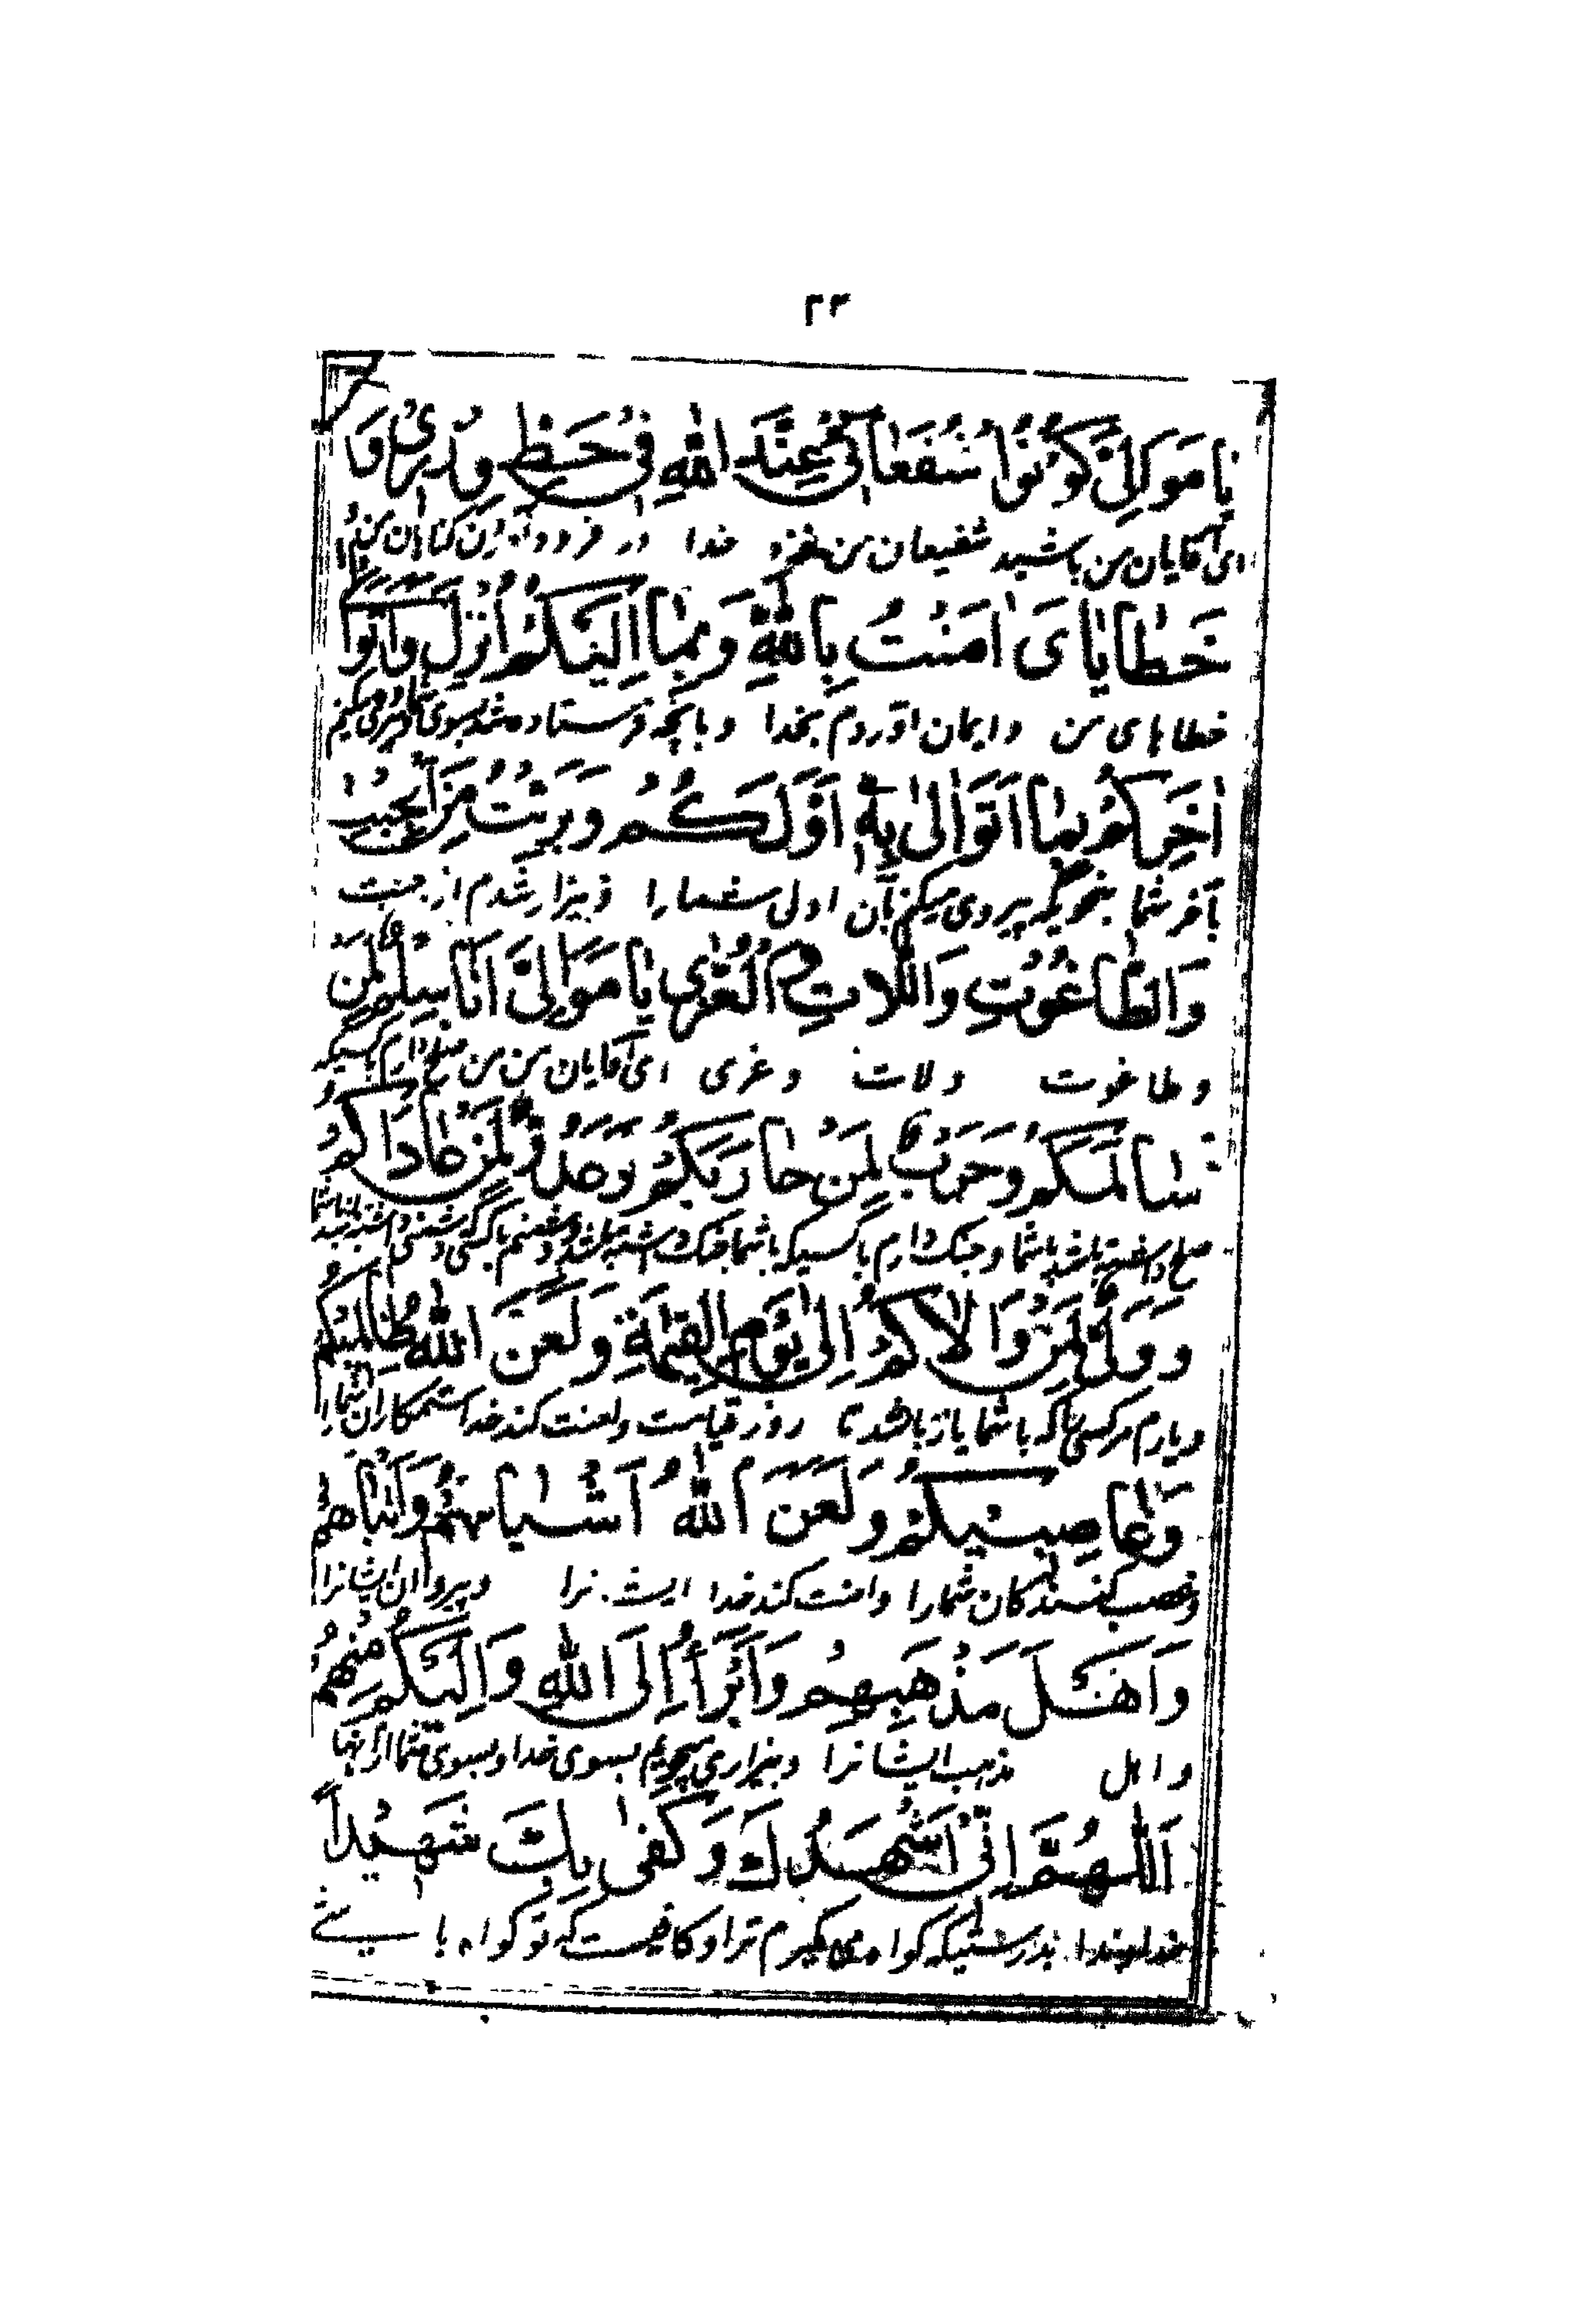 ٢٣
يا مَوالِيَّ كُونُوا شُفَعائي عِنْدَ اللهِ في حَطِّ وِزْري وَ
ای آقایان من باشید شفیعان من نزد خدا در فرود آوردن گناهان من
خَطايايَ امَنْتُ بِاللهِ وَبِما اُنْزِلَ اِلَيْكُمْ وَاَتَوالى
خطاهای من و ایمان آوردم بخدا و بآنچه فرستاده شد بسوی شما و میکنم
اخِرَكُمْ بِما اَتَوالى بِهِ اَوَّلَكُمْ وَبَرِئْتُ مِنَ الْجِبْتِ
بآخر شما بنحویکه پیروی میکنم بآن اولی شما را و بیزار شدم از جبت
وَالطّاغُوتِ وَاللّاتِ وَالْعُزّى يا مَوالِيَّ اَنَا سِلْمٌ لِمَنْ
و طاغوت و لات و عزی ای آقایان من من صلح دارم باکسیکه
سالَمَكُمْ وَحَرْبٌ لِمَنْ حارَبَكُمْ وَعَدُوٌّ لِمَنْ عاداكُمْ
صلح داشته باشد باشما و جنگ دارم با کسیکه باشما جنگ داشته باشد و دشمنم
وَوَلِيٌّ لِمَنْ والاكُمْ اِلى يَوْمِ الْقِيمَةِ وَلَعَنَ اللهُ ظالِميكُمْ
و یارم هر کسی را که با شما یار باشد تا روز قیامت و لعنت کند خدا ستمکاران شما را
وَغاصِبيكُمْ وَلَعَنَ اللهُ اَشْياعَهُمْ وَاَتْباعَهُمْ
و غصب کنندگان شما را و لعنت کند خدا ایشانرا و پیروان ایشانرا
وَاَهْلَ مَذْهَبِهِمْ وَاَبْرَأُ اِلَى اللهِ وَاِلَيْكُمْ مِنْهُمْ
و اهل مذهب ایشانرا و بیزاری میجویم بسوی خدا و بسوی شما از آنها
اَللّهُمَّ اِنّي اُشْهِدُكَ وَكَفى بِكَ شَهيداً
خداوندا بدرستیکه گواه می گیرم ترا و کافیست که تو گواه باشی